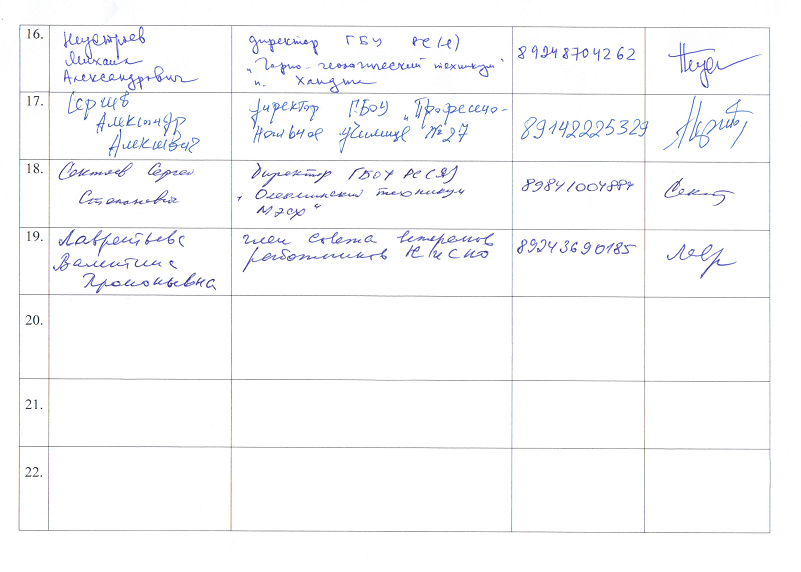 16.
Неустроев
Михаил
Александрович
директор ГБУ РС(Я)
"Горно-геологический техникум"
п. Хандыга
89248704262
17.
Сергеев
Александр
Алексеевич
Директор ГБОУ "Професио-
нальное училище №27
89142225329
18.
Сектяев Сергей
Степанович
Директор ГБОУ РС(Я)
"Олекминский техникум
89841004884
19.
Лаврентьева
Валентина
Прокопьевна
член совета ветеранов
работников НиСПО
89243690185
20.
21.
22.